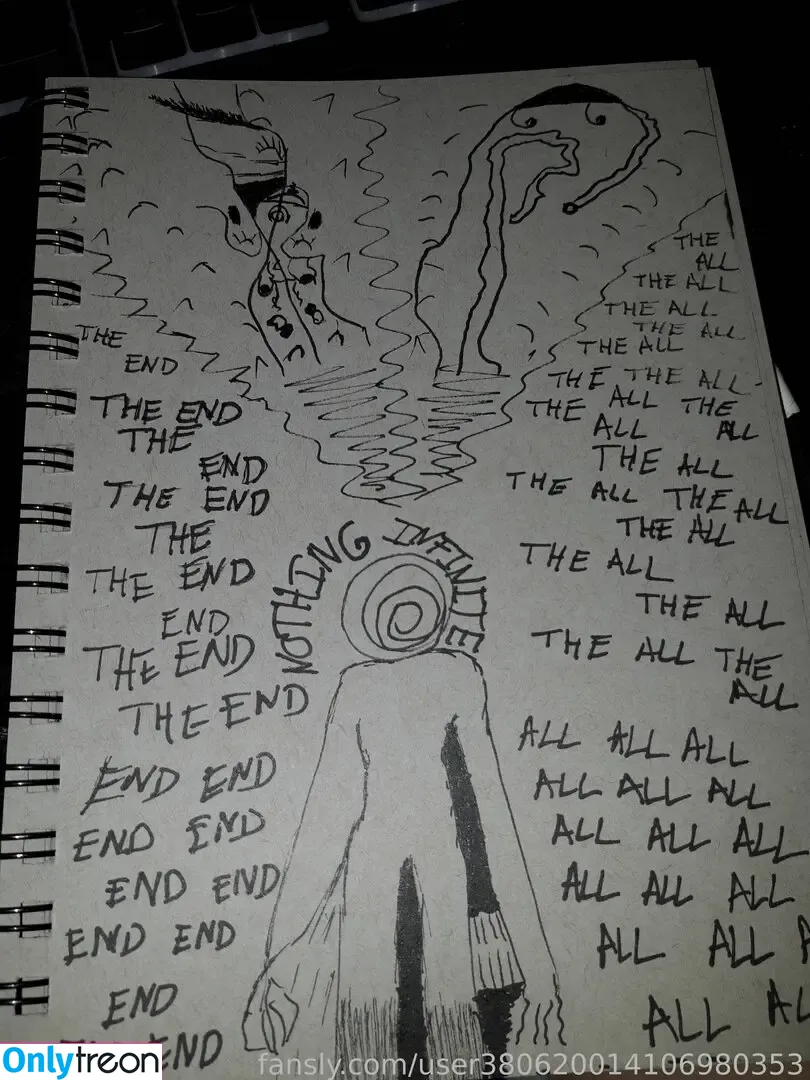 THE
END
THE END
THE
END
THE END
THE
THE END
END
THE END
THE END
END END
END END
END END
END END
END
END
NOTHING INFINITE
THE
ALL
THE ALL
THE ALL
THE ALL
THE ALL
THE THE ALL
THE ALL THE
ALL ALL
THE ALL
THE ALL THE ALL
THE ALL
THE ALL
THE ALL
THE ALL THE
ALL
ALL ALL ALL
ALL ALL ALL
ALL ALL ALL
ALL ALL ALL
ALL ALL A
ALL AL
Onlytreon
fansly.com/user380620014106980353